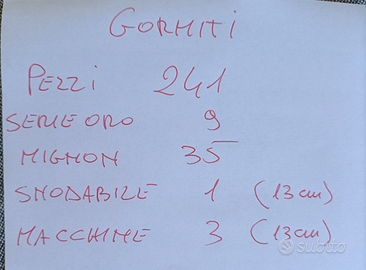 GORMITI
PEZZI 241
SERIE ORO 9
MIGNON 35
SNODABILE 1 (13 cm)
MACCHINE 3 (13 cm)
subito